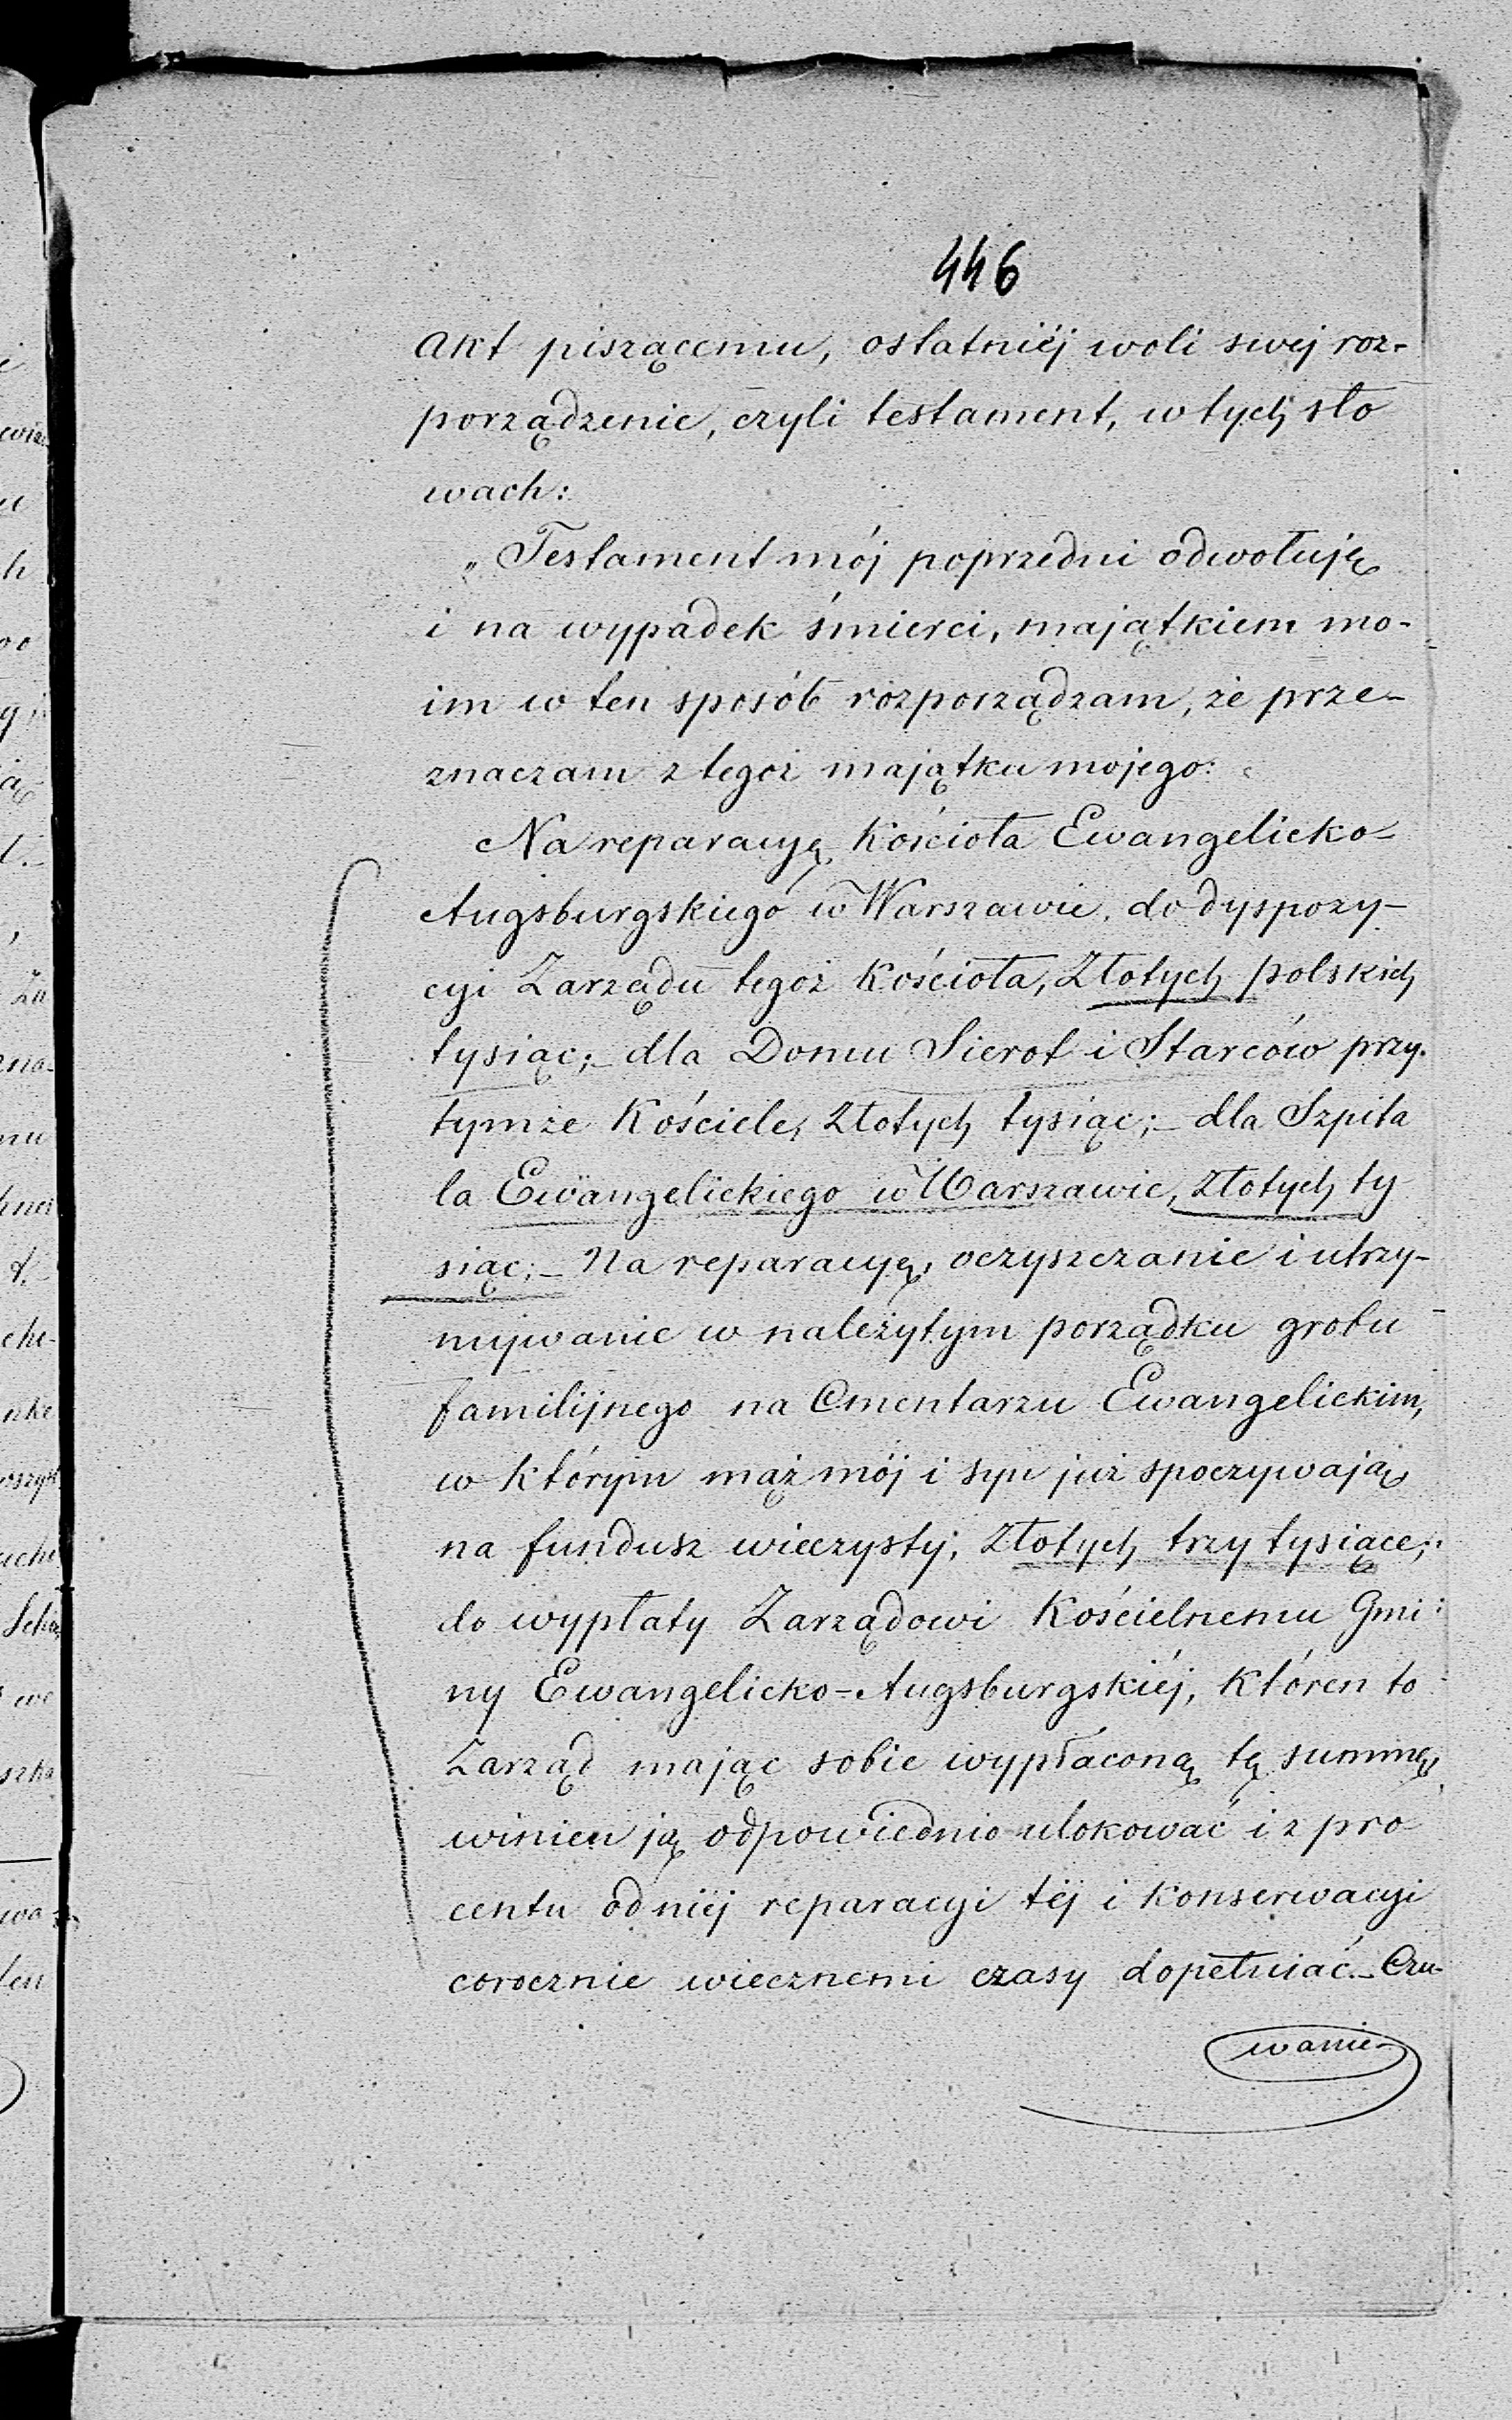 446
akt piszącemu, ostatniéj woli swéj roz-
porządzenie, czyli testament, w tych sło
wach:
„Testament mój poprzedni odwołuję
i na wypadek śmierci, majątkiem mo-
im w ten sposób rozporządzam, że prze-
znaczam z tegoż majątku mojego:
Na reparacyę Kościoła Ewangelicko-
Augsburgskiego w Warszawie, do dyspozy-
cyi Zarządu tegoż Kościoła, Złotych polskich
tysiąc;– dla Domu Sierot i Starców przy
tymże Kościele, Złotych tysiąc;– dla Szpita
la Ewangelickiego w Warszawie, złotych ty
siąc;– Na reparacyę, oczyszczanie i utrzy-
mywanie w należytym porządku grobu
familijnego na Cmentarzu Ewangelickim,
w którym mąż mój i syn już spoczywają
na fundusz wieczysty, Złotych trzy tysiące;
do wypłaty Zarządowi Kościelnemu Gmi
ny Ewangelicko-Augsburgskiéj, któren to
Zarząd mając sobie wypłaconą tę summę,
winien ją odpowiednio ulokować i z pro
centu od niéj reparacyi téj i konserwacyi
corocznie wiecznemi czasy dopełniać.– Czu-
wanie